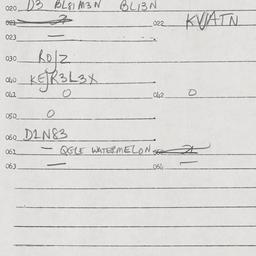 020 D3 BL8IM3N BL13N
021 022 KVJATN
023 —
030 ROJZ
040 KEJR3L3X
041 O 042 O
050 O
060 D1N83
061 — QELE WATERMELON
063 — —